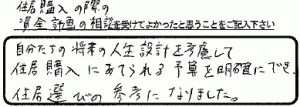 住居購入の際の
資金計画の相談を受けてよかったと思うことをご記入下さい
自分たちの将来の人生設計を考慮して
住居購入にあてられる予算を明確にでき
住居選びの参考になりました。